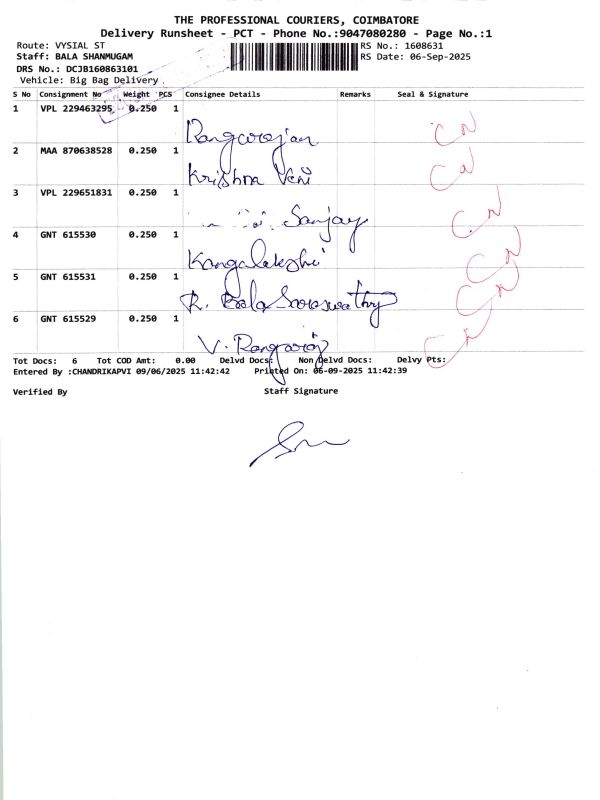 THE PROFESSIONAL COURIERS, COIMBATORE
Delivery Runsheet - PCT - Phone No.:9047080280 - Page No.:1
Route: VYSIAL ST RS No.: 1608631
Staff: BALA SHANMUGAM RS Date: 06-Sep-2025
DRS No.: DCJB160863101
Vehicle: Big Bag Delivery .
S No Consignment No Weight PCS Consignee Details Remarks Seal & Signature
1 VPL 229463295 0.250 1
Rangarajan
2 MAA 870638528 0.250 1
Krishna Veni
3 VPL 229651831 0.250 1
Sanjay
4 GNT 615530 0.250 1
5 GNT 615531 0.250 1
R. Bala Saraswathy
6 GNT 615529 0.250 1
V. Rangaraj
Tot Docs: 6 Tot COD Amt: 0.00 Delvd Docs: Non Delvd Docs: Delvy Pts:
Entered By :CHANDRIKAPVI 09/06/2025 11:42:42 Printed On: 06-09-2025 11:42:39
Verified By Staff Signature